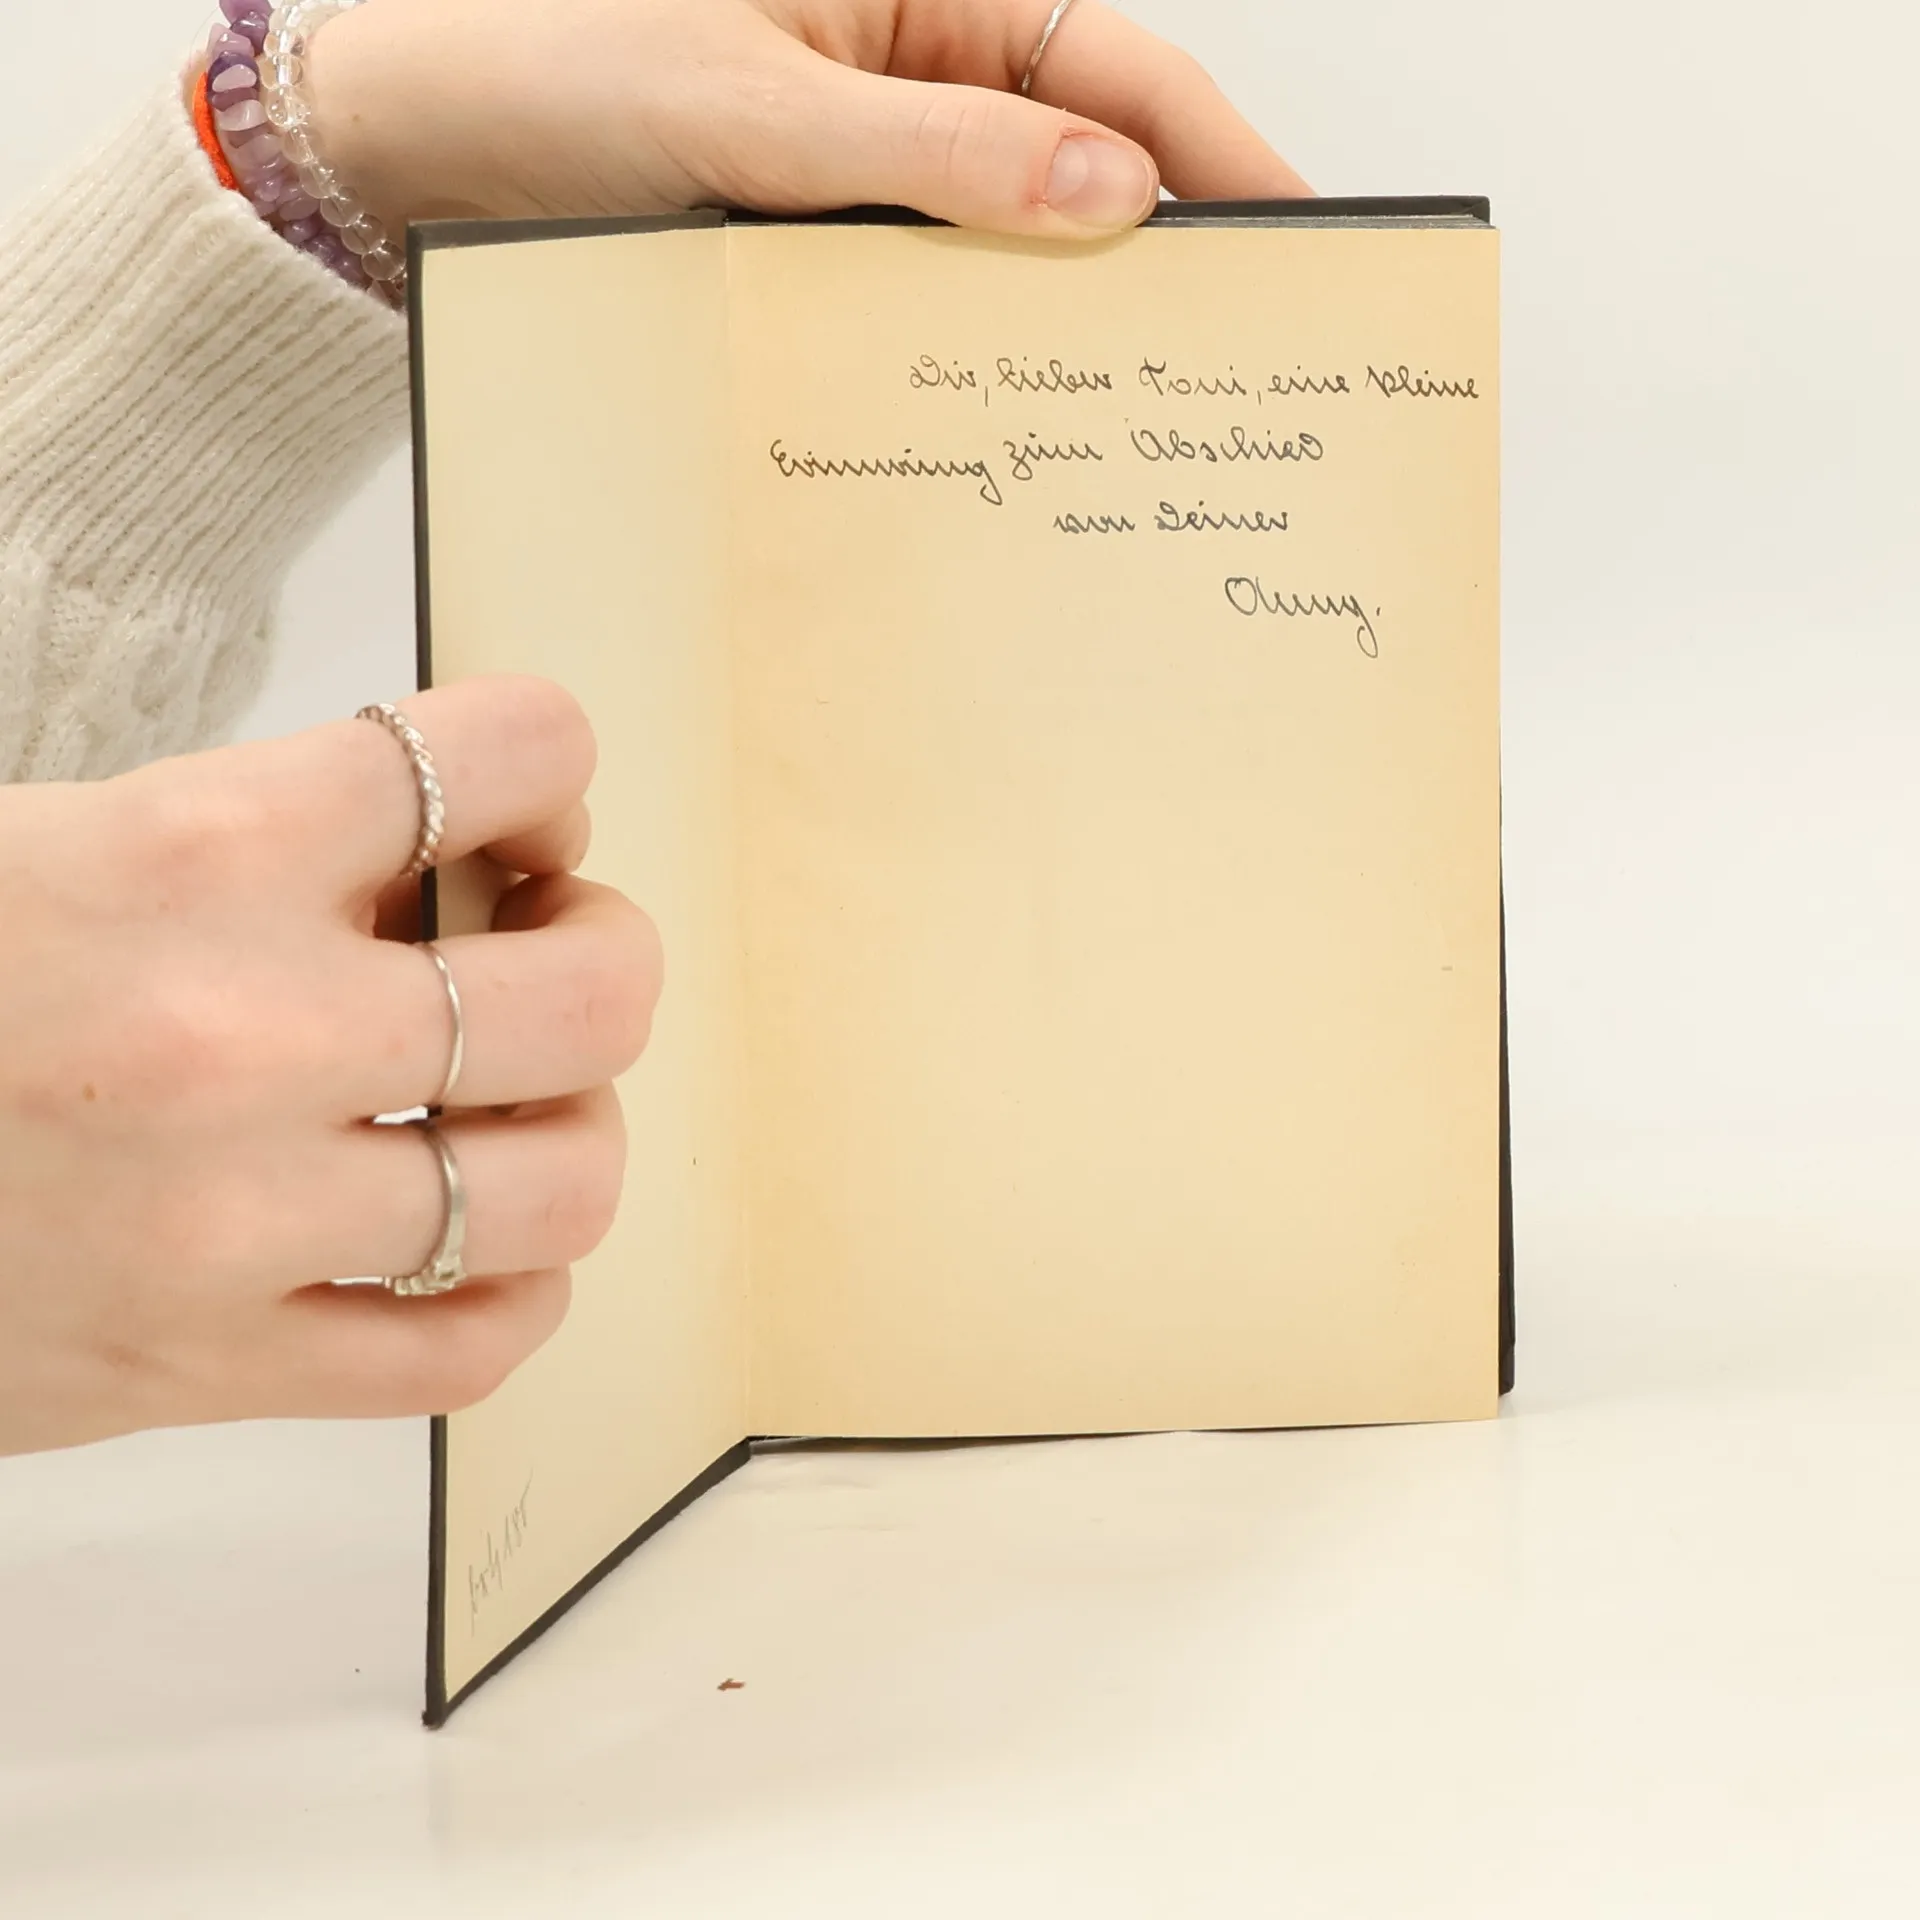 Dir, lieber Toni, eine kleine
Erinnerung zum Abschied
von Deiner